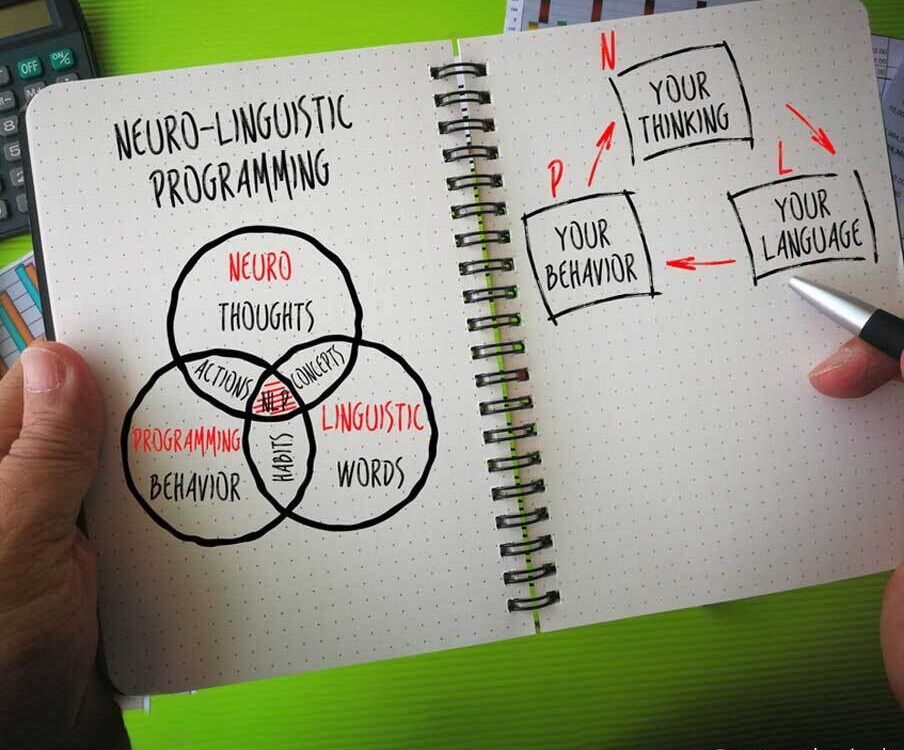 NEURO-LINGUISTIC
PROGRAMMING
NEURO
THOUGHTS
ACTIONS
CONCEPTS
NLP
PROGRAMMING
BEHAVIOR
HABITS
LINGUISTIC
WORDS
N
YOUR
THINKING
P
YOUR
BEHAVIOR
L
YOUR
LANGUAGE
OFF
ON/C
M-
8
5
2